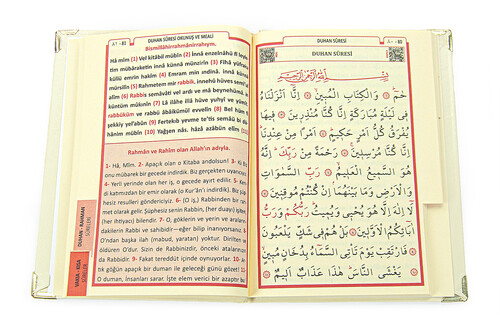 A١ - 81 DUHAN SÛRESİ OKUNUŞ VE MEALİ
Bismillâhirrahmânirrahîym.
Hâ mîm (1) Vel kitâbil mübîn (2) İnnâ enzelnâhü fî leyle
tim mübâraketin innâ künnâ münzirîn (3) Fîhâ yüfraku
küllü emrin hakîm (4) Emram min ındinâ. innâ künnâ
mürsilîn (5) Rahmetem mir rabbik. innehû hüves semîul
alîm (6) Rabbis semâvâti vel ardı ve mâ beynehümâ. in
küntüm mûkınîn (7) Lâ ilâhe illâ hüve yuhyî ve yümît.
rabbüküm ve rabbü âbâikümül evvelîn (8) Bel hüm fî
şekkiy yel'abûn (9) Fertekıb yevme te'tis semâü bi dü
hânim mübîn (10) Yağşen nâs. hâzâ azâbün elîm (11)
Rahmân ve Rahîm olan Allah'ın adıyla.
1- Hâ, Mîm. 2- Apaçık olan o Kitaba andolsun! 3- Ki biz
onu mübarek bir gecede indirdik. Biz gerçekten uyarıcıyız.
4- Yerli yerinde olan her iş, o gecede ayırt edilir. 5-
katımızdan bir emir olarak (o Kur'ân'ı indirdik). Biz
6- (O iş,) Rabbinden bir rah
met olarak gelir. Şüphesiz senin Rabbin, (her duayı) işiten,
(her ihtiyacı) bilendir. 7- O, göklerin ve yerin ve aradaki
lerin Rabbi ve sahibidir—eğer bilip inanıyorsanız. 8-
O'ndan başka ilah (mabud, yaratan) yoktur. Dirilten ve
öldüren O'dur. Sizin de Rabbinizdir, önceki atalarınızın
da Rabbidir. 9- Fakat tereddüt içinde oynuyorlar. 10- Ar
tık göğün apaçık bir duman ile geleceği günü gözet! 11-
O duman, insanları sarar. İşte elem verici bir azaptır bu
DUHAN - RAHMAN
SÛRELERİ
DUALAR
DUHAN SÛRESİ
٨٠ - 80
DUHAN SÛRESİ
بِسْمِ اللهِ الرَّحْمٰنِ الرَّحِيمِ
حٰمٓ ۞ وَالْكِتَابِ الْمُبِينِ ۞ اِنَّٓا اَنْزَلْنَاهُ
فِي لَيْلَةٍ مُبَارَكَةٍ اِنَّا كُنَّا مُنْذِرِينَ ۞ فِيهَا
يُفْرَقُ كُلُّ اَمْرٍ حَكِيمٍ ۞ اَمْرًا مِنْ عِنْدِنَا
اِنَّا كُنَّا مُرْسِلِينَ ۞ رَحْمَةً مِنْ رَبِّكَ اِنَّهُ
هُوَ السَّمِيعُ الْعَلِيمُ ۞ رَبِّ السَّمٰوَاتِ
وَالْاَرْضِ وَمَا بَيْنَهُمَا اِنْ كُنْتُمْ مُوقِنِينَ ۞
لَٓا اِلٰهَ اِلَّا هُوَ يُحْيِي وَيُمِيتُ رَبُّكُمْ وَرَبُّ
اٰبَٓائِكُمُ الْاَوَّلِينَ ۞ بَلْ هُمْ فِي شَكٍّ يَلْعَبُونَ ۞
فَارْتَقِبْ يَوْمَ تَأْتِي السَّمَٓاءُ بِدُخَانٍ مُبِينٍ ۞
يَغْشَى النَّاسَ هٰذَا عَذَابٌ اَلِيمٌ ۞